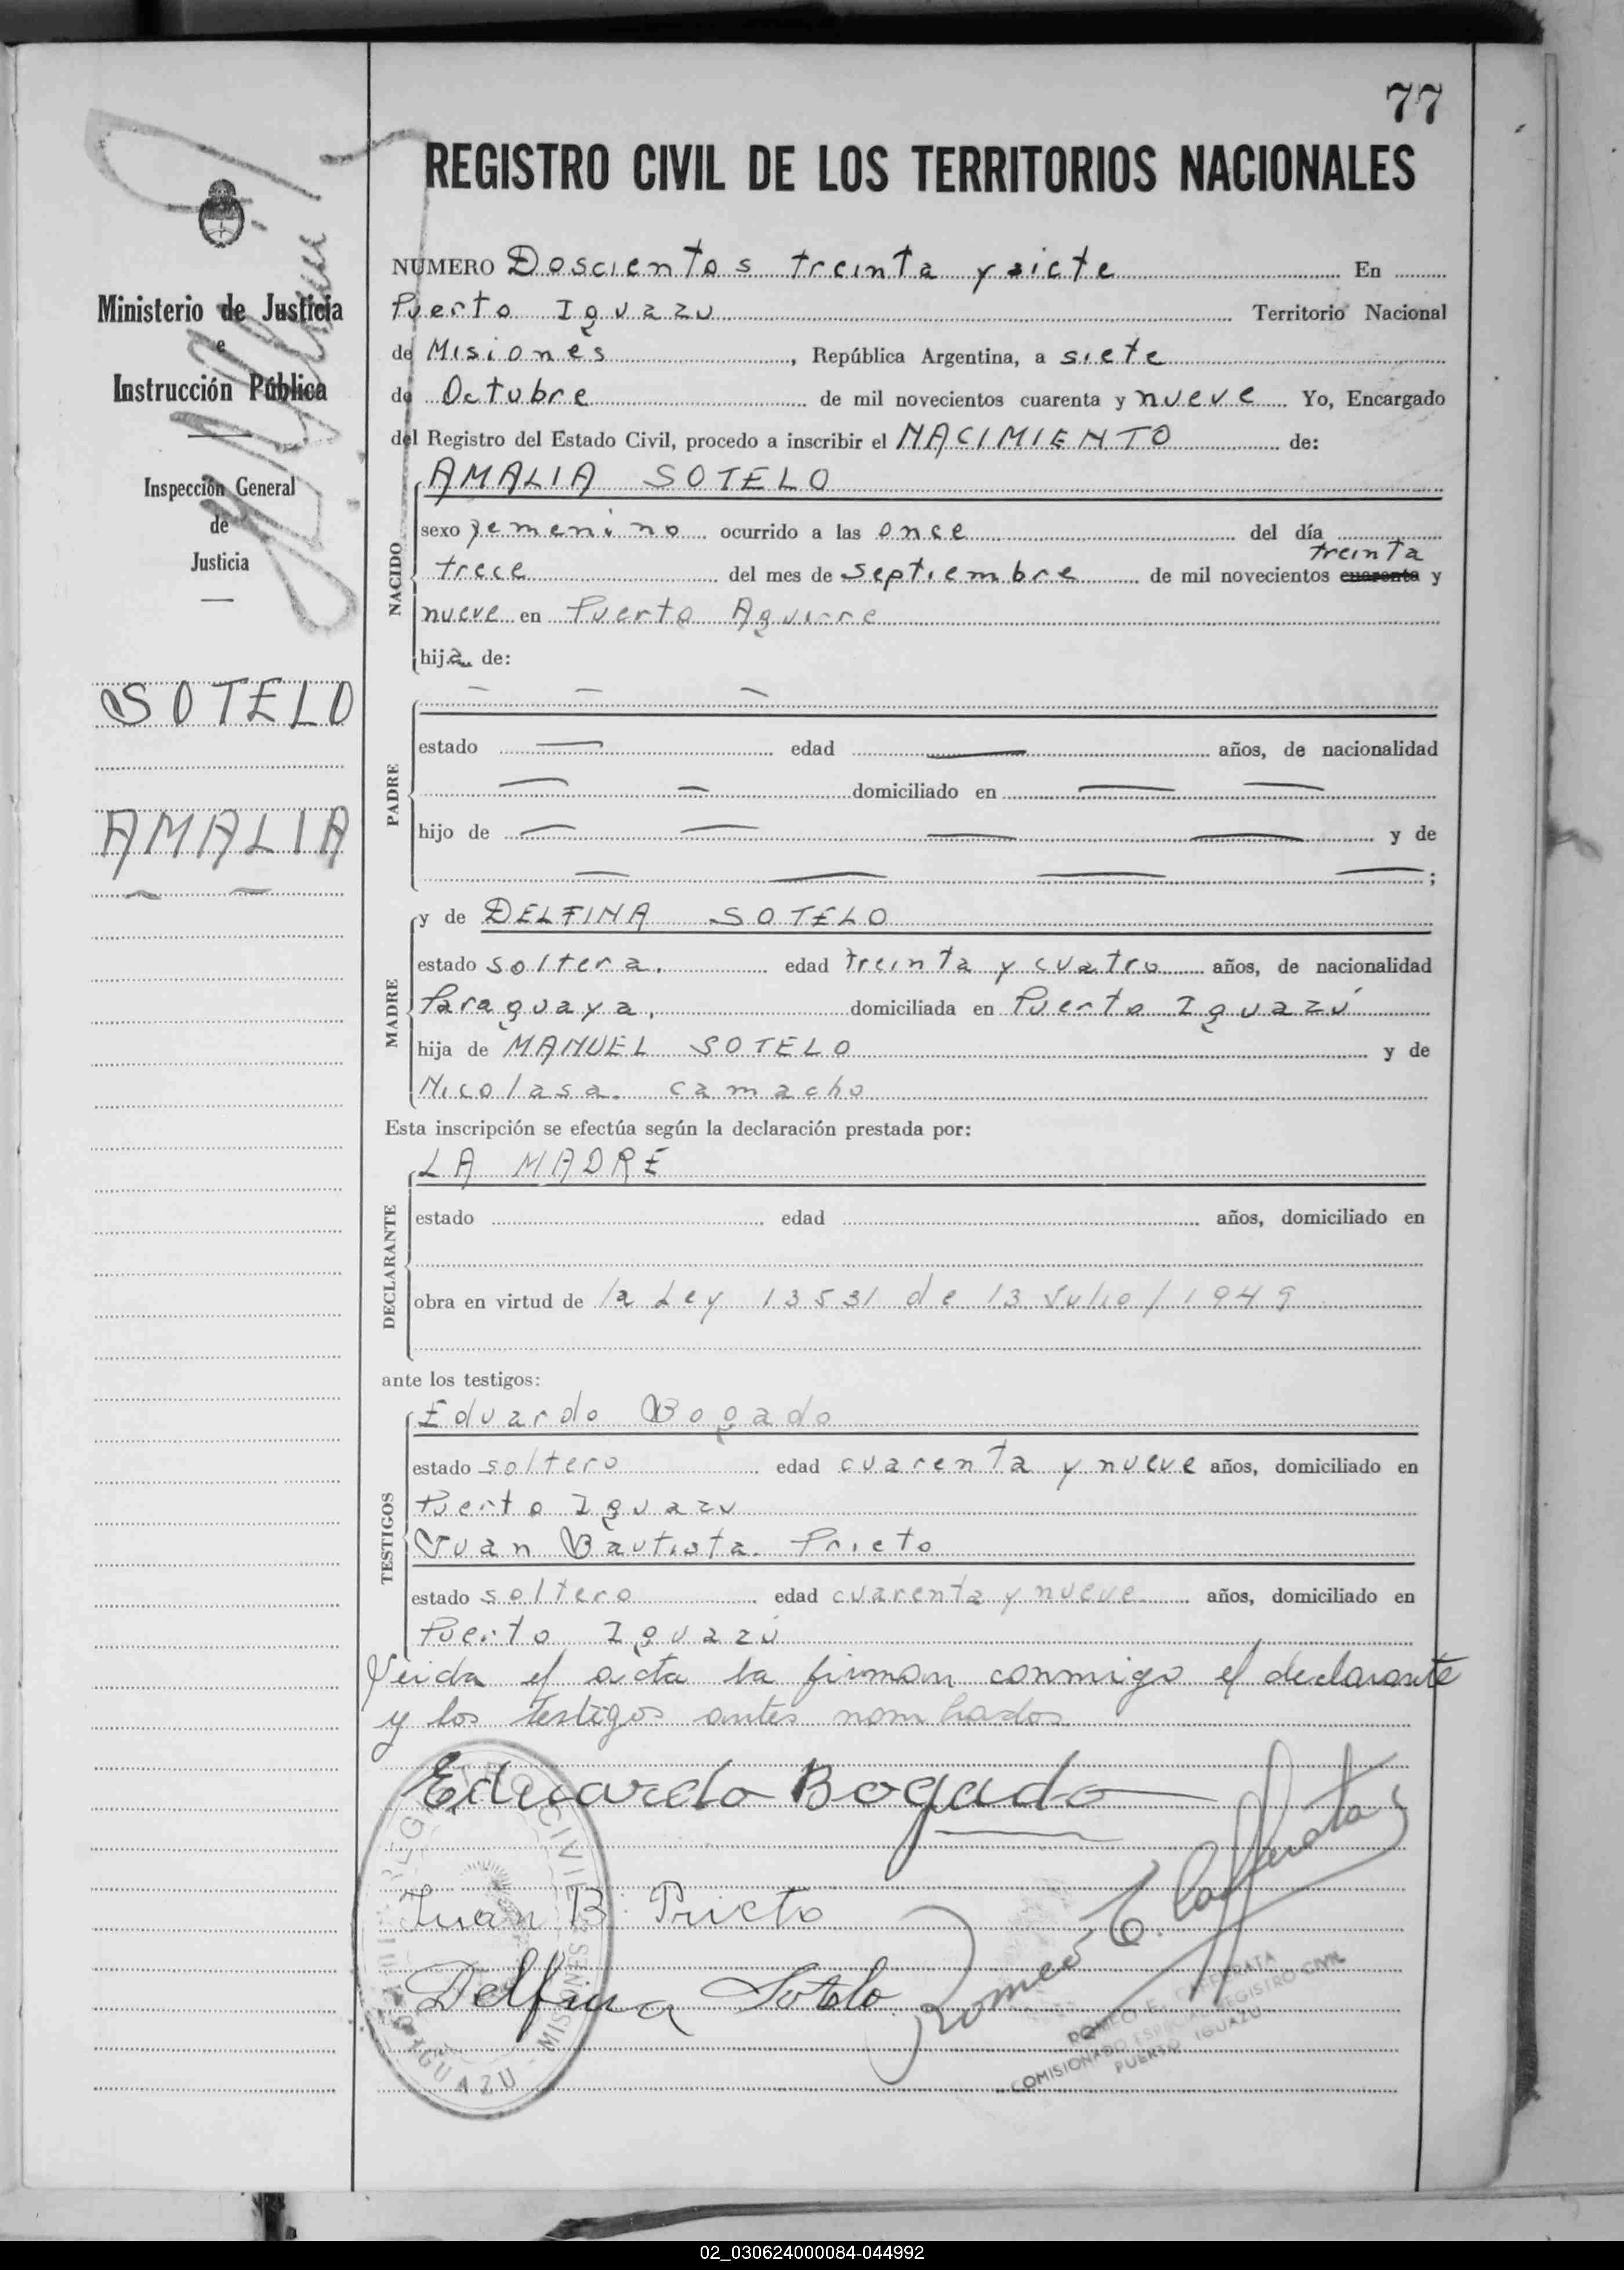 77
REGISTRO CIVIL DE LOS TERRITORIOS NACIONALES
Ministerio de Justicia
e
Instrucción Pública
Inspección General
de
Justicia
SOTELO
AMALIA
NUMERO Doscientos treinta y siete En
Puerto Iguazu Territorio Nacional
de Misiones, República Argentina, a siete
de Octubre de mil novecientos cuarenta y nueve Yo, Encargado
del Registro del Estado Civil, procedo a inscribir el NACIMIENTO de:
NACIDO
AMALIA SOTELO
sexo femenino ocurrido a las once del día
treinta
trece del mes de septiembre de mil novecientos cuarenta y
nueve en Puerto Aguirre
hija de:
PADRE
estado — edad — años, de nacionalidad
— — domiciliado en — —
hijo de — — — — y de
— — — — ;
MADRE
y de DELFINA SOTELO
estado soltera. edad treinta y cuatro años, de nacionalidad
Paraguaya, domiciliada en Puerto Iguazú
hija de MANUEL SOTELO y de
Nicolasa. camacho
Esta inscripción se efectúa según la declaración prestada por:
DECLARANTE
LA MADRE
estado edad años, domiciliado en
obra en virtud de la Ley 13531 de 13 Julio/1949
ante los testigos:
TESTIGOS
Eduardo Bogado
estado soltero edad cuarenta y nueve años, domiciliado en
Puerto Iguazu
Juan Bautista. Prieto
estado soltero edad cuarenta y nueve años, domiciliado en
Puerto Iguazú
Leida el acta la firman conmigo el declarante
y los testigos antes nombrados
Eduardo Bogado
Juan B. Prieto
Delfina Sotelo
Romeo E. Cafferata
ROMEO E. CAFFERATA
COMISIONADO ESPECIAL REGISTRO CIVIL
PUERTO IGUAZU
CIVIL
IGUAZU - MISIONES
02_030624000084-044992